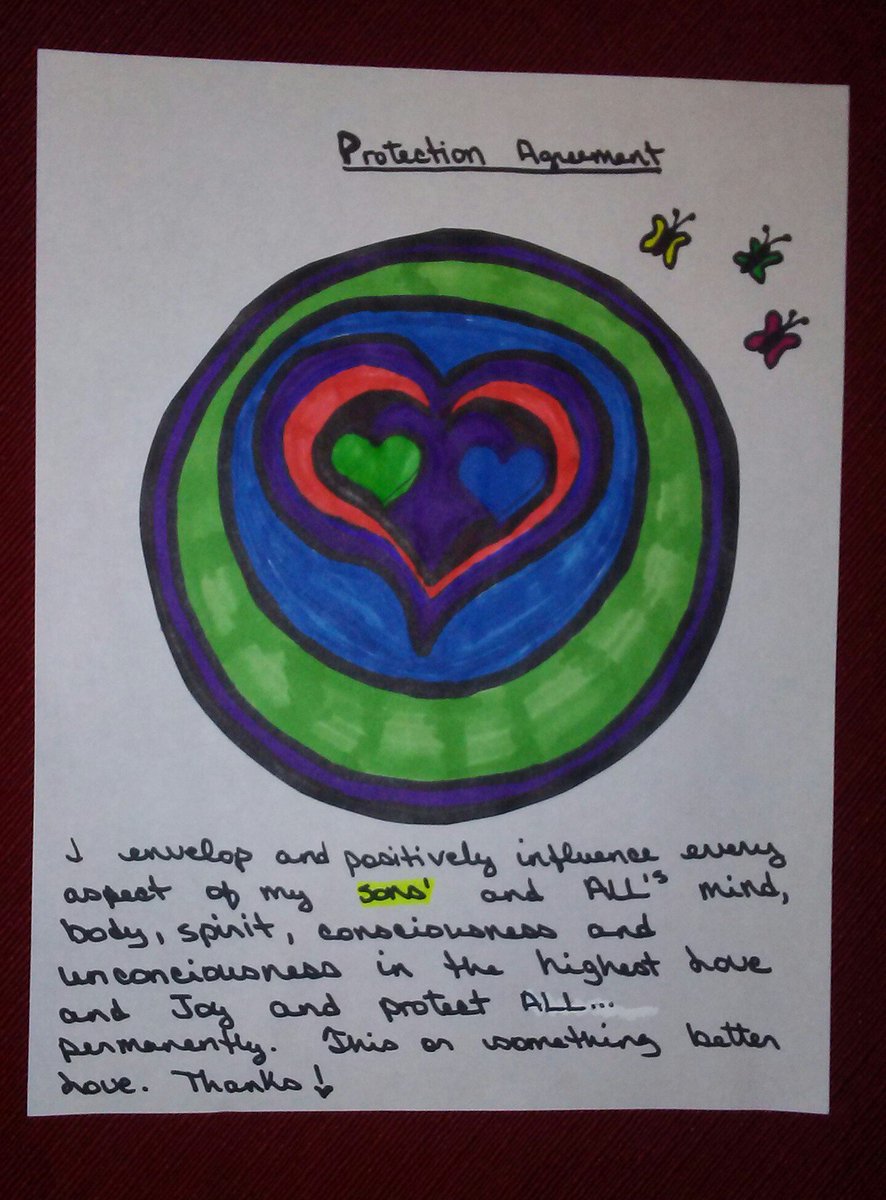 Protection Agreement
I envelop and positively influence every
aspect of my sons' and ALL's mind,
body, spirit, consciousness and
unconciousness in the highest Love
and Joy and protect ALL...
permanently. This or something better
Love. Thanks!